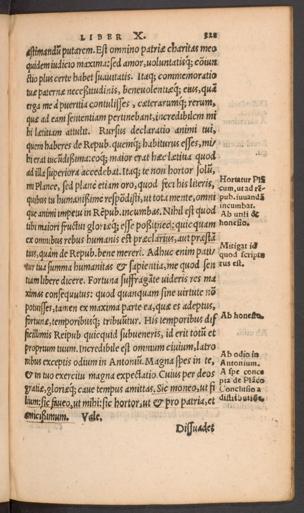 LIBER X. 328
æstimandũ putarem. Est omnino patriæ charitas meo
quidem iudicio maxima: sed amor, voluntatisq; cõiun
ctio plus certe habet suauitatis. Itaq; commemoratio
tua paternæ necessitudinis, beneuolentiæq; eius, quã
erga me à pueritia contulisses, cæterarumq; rerum,
quæ ad eam sententiam pertinebant, incredibilem mi
hi lætitiam attulit. Rursus declaratio animi tui,
quem haberes de Repub. quemq; habiturus esses, mi
hi erat iucũdissima: eoq; maior erat hæc lætitia quod
ad illa superiora accedebat. Itaq; te non hortor solũ,
mi Plance, sed planè etiam oro, quod feci his literis,
quibus tu humanißime respõdisti, ut tota mente, omni
que animi impetu in Rẽpub. incumbas. Nihil est quod
tibi maiori fructui gloriæq; esse poßit: nec quicquam
ex omnibus rebus humanis est præclarius, aut præstã
tius, quàm de Repub. bene mereri. Adhuc enim pati-
tur tua summa humanitas & sapientia, me quod sen
tiam libere dicere. Fortuna suffragãte uideris res ma
ximas consequutus: quod quanquam sine uirtute nõ
potuisses, tamen ex maxima parte ea, quæ es adeptus,
fortunæ, temporibusq; tribuũtur. His temporibus dif
ficillimis Reipub quicquid subueneris, id erit totũ et
proprium tuum. Incredibile est omnium ciuium, latro
nibus exceptis odium in Antoniũ. Magna spes in te,
& in tuo exercitu magna expectatio. Cuius per deos
gratiæ, gloriæq; caue tempus amittas. Sic moneo, ut fi
lium: sic faueo, ut mihi: sic hortor, ut & pro patria, et
amicißimum. Vale.
Dissuades
Hortatur Plã
cum, ut ad rẽ-
pub. iuuandã
incumbat.
Ab utili &
honesto.
Mitigat id
quod scriptu
rus est.
Ab honesto.
Ab odio in
Antonium.
A spe conce
pta de Plãco
Conclusio a